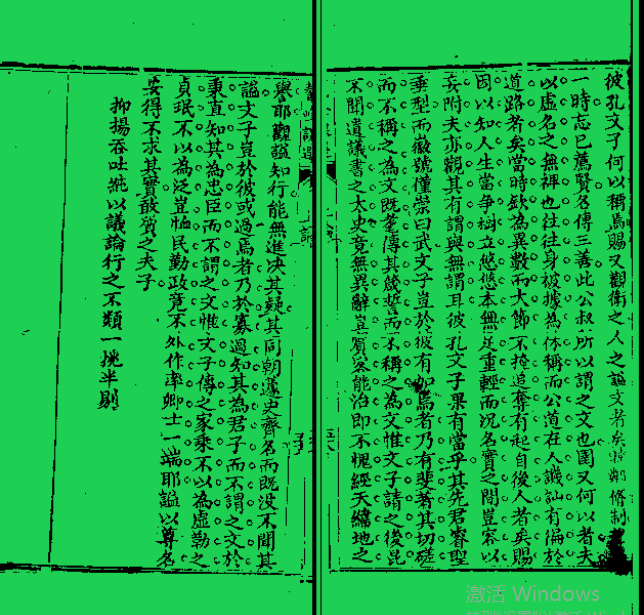 彼孔文子何以稱焉賜又觀衛之人之諡文者矣時鄰修制
一時忘已薦賢名傳三善此公叔所以謂之文也圉又何以者夫
以虛名之無裨也往往身被據為休稱而公道在人譏訕有偏於
道路者矣當時欽為異數而大節不掩追奪有起自後人者矣賜
因以知人生當爭樹立悠悠本無足重輕而況名實之間豈容以
妄附夫亦觀其有謂與無謂耳彼孔文子果有當乎其先君睿聖
垂型而徽號僅崇曰武文子豈於彼有加焉者乃有斐著其切磋
而不稱之為文既耄傳其箴誓而不稱之為文惟文子請之後昆
不聞遺議書之太史竟無異辭豈賓客能治即不愧經天緯地之
譽耶觀諡知行能無進決其疑其同朝蘧史齊名而既沒不聞其
諡文子豈於彼或過焉者乃於寡過知其為君子而不謂之文於
秉直知其為忠臣而不謂之文惟文子傳之家乘不以為虛勤之
貞珉不以為泛豈恤民勤政竟不外作率卿士一端耶諡以尊名
安得不求其實敢質之夫子
抑揚吞吐純以議論行之不類一挑半剔
激活 Windows